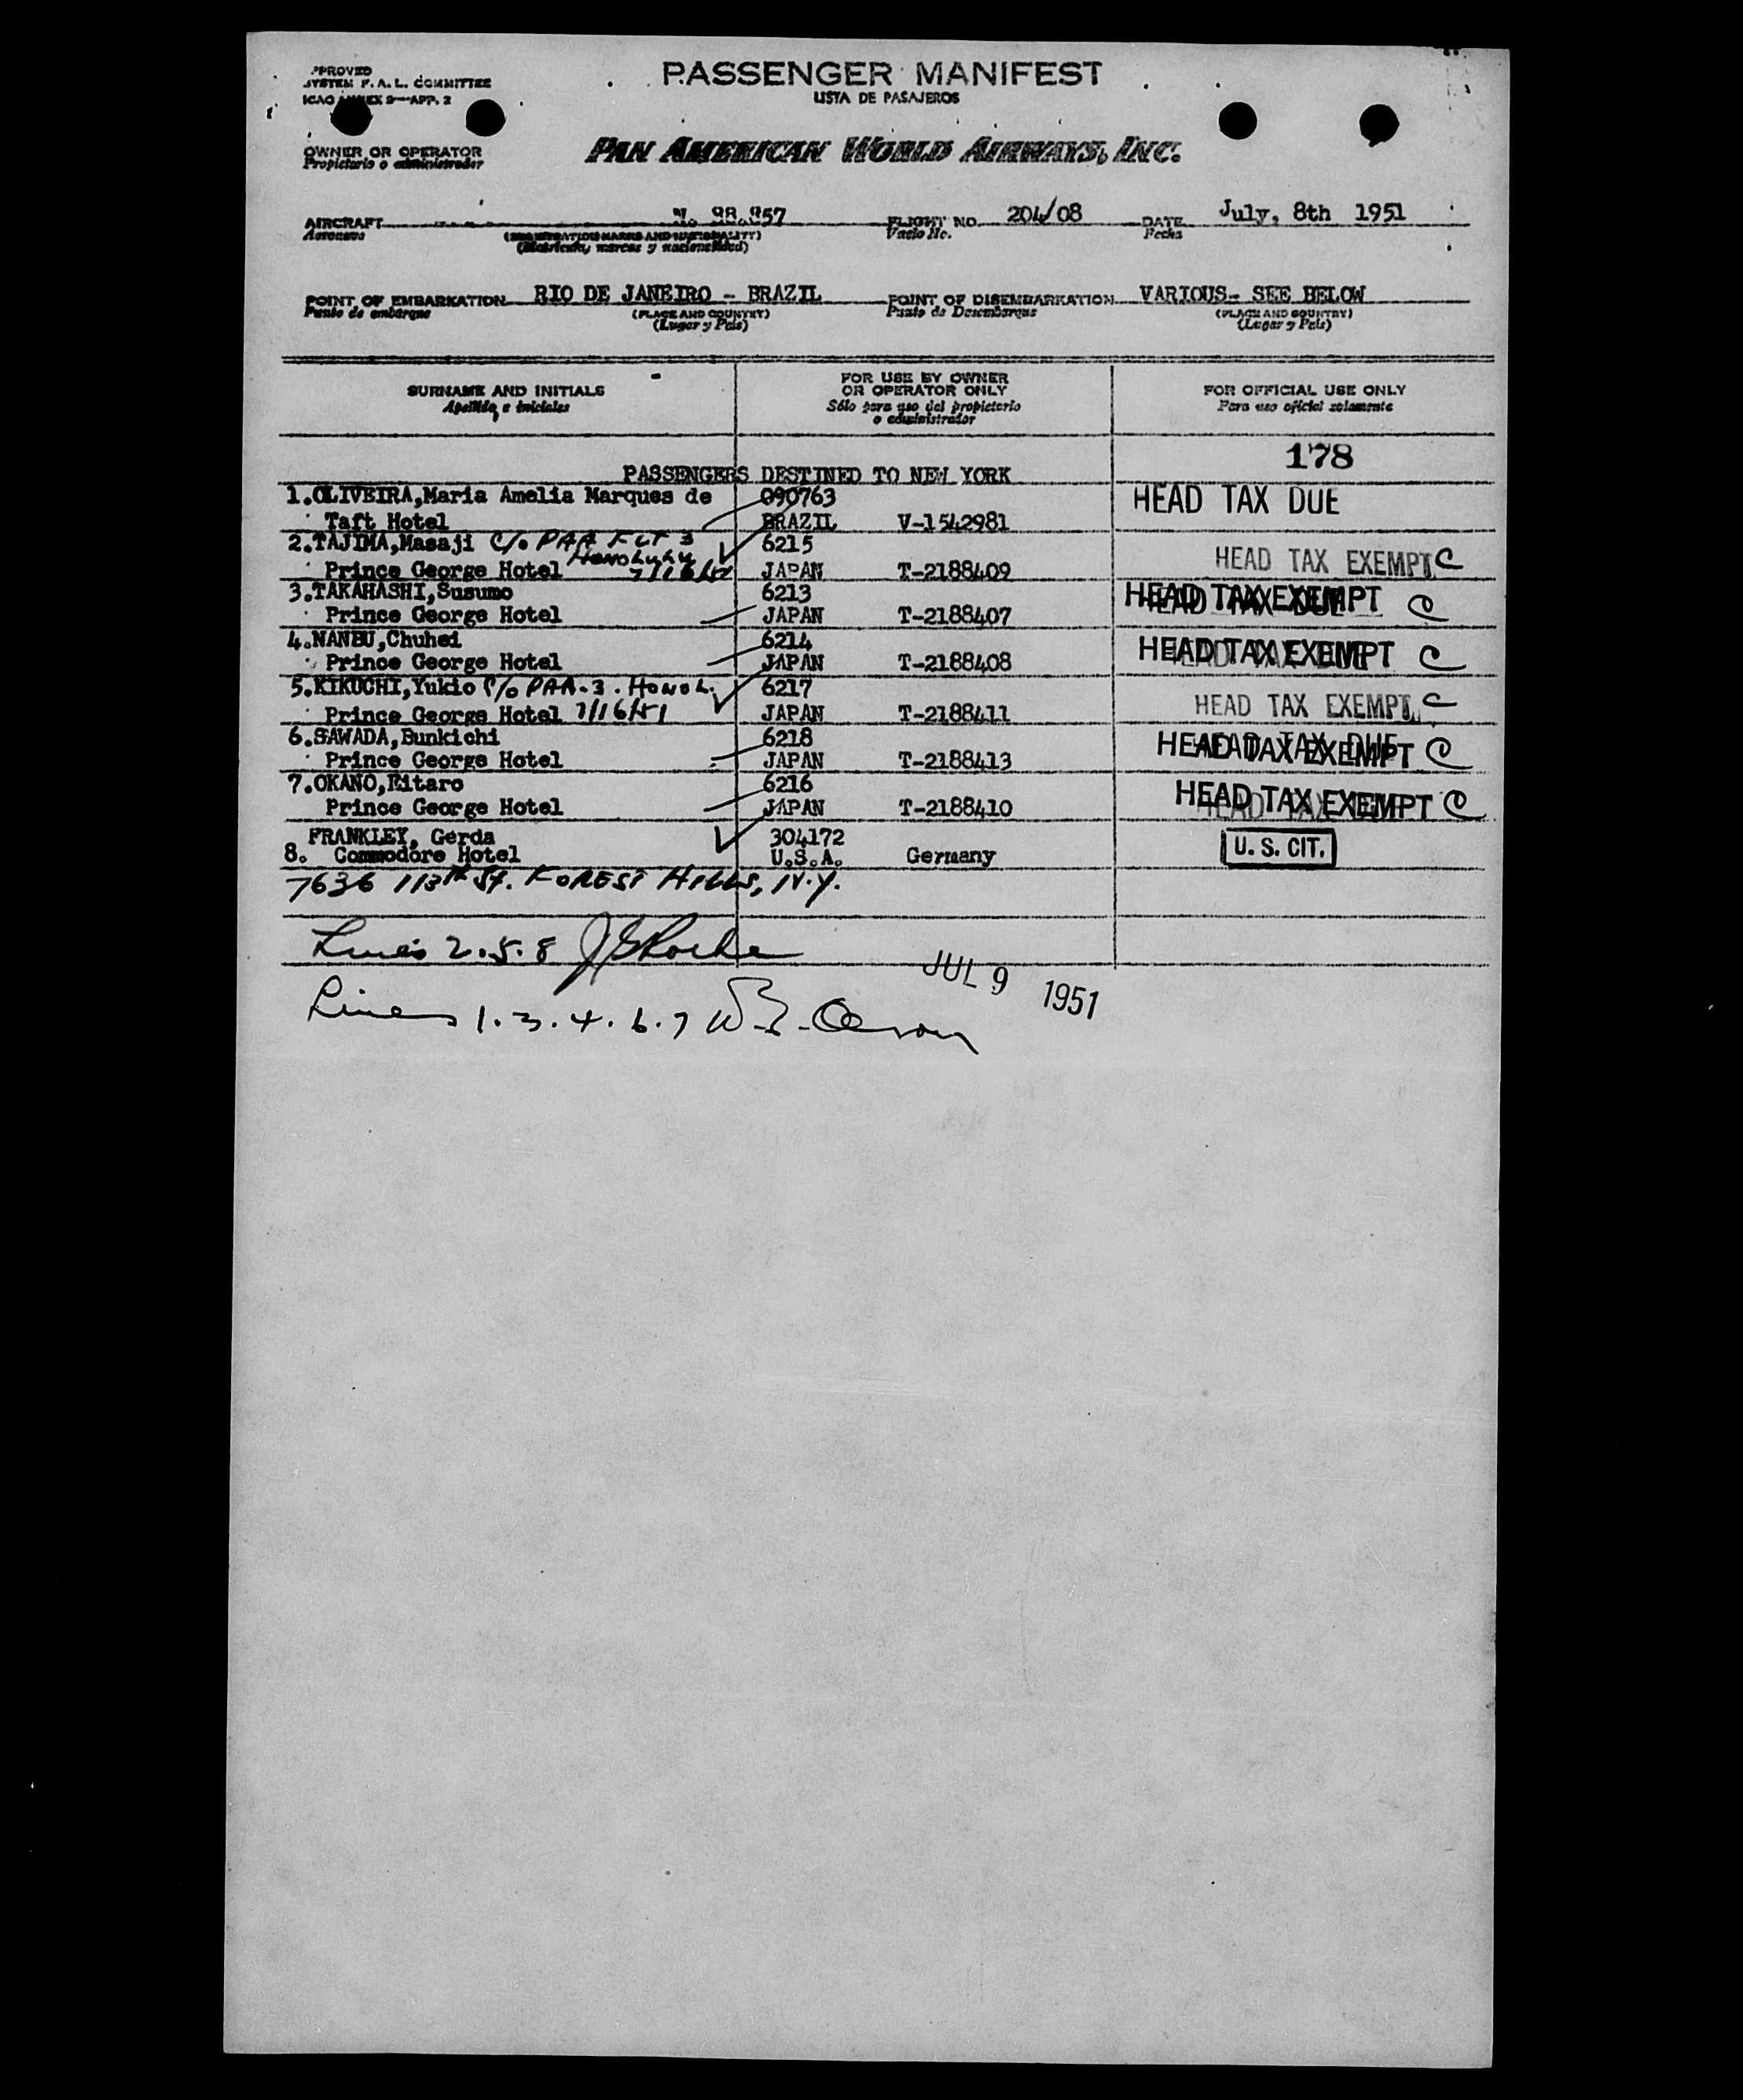 PASSENGER MANIFEST
LISTA DE PASAJEROS
SYSTEM F. A. L. COMMITTEE
ICAO ANNEX 9—APP. 2
OWNER OR OPERATOR
Propietario o administrador
PAN AMERICAN WORLD AIRWAYS, INC.
AIRCRAFT N. 88.857 FLIGHT NO. 204/08 DATE July, 8th 1951
Aeronave (REGISTRATION MARKS AND NATIONALITY) Vuelo No. Fecha
(Matricula, marcas y nacionalidad)
POINT OF EMBARKATION RIO DE JANEIRO - BRAZIL POINT OF DISEMBARKATION VARIOUS- SEE BELOW
Punto de embarque (PLACE AND COUNTRY) Punto de Desembarque (PLACE AND COUNTRY)
(Lugar y País) (Lugar y País)
SURNAME AND INITIALS FOR USE BY OWNER OR OPERATOR ONLY FOR OFFICIAL USE ONLY
Apellido e iniciales Sólo para uso del propietario o administrador Para uso oficial solamente
178
PASSENGERS DESTINED TO NEW YORK
1.OLIVEIRA,Maria Amelia Marques de 090763 HEAD TAX DUE
Taft Hotel BRAZIL V-1542981
2.TAJIMA,Masaji C/o PAA FLT 3 6215 HEAD TAX EXEMPT C
Prince George Hotel Honolulu 7/16/51 JAPAN T-2188409
3.TAKAHASHI,Susumo 6213 HEAD TAX EXEMPT C
Prince George Hotel JAPAN T-2188407
4.NANBU,Chuhei 6214 HEAD TAX EXEMPT C
Prince George Hotel JAPAN T-2188408
5.KIKUCHI,Yukio C/o PAA-3. HONOL. 6217 HEAD TAX EXEMPT C
Prince George Hotel 7/16/51 JAPAN T-2188411
6.SAWADA,Bunkichi 6218 HEAD TAX EXEMPT C
Prince George Hotel JAPAN T-2188413
7.OKANO,Eitaro 6216 HEAD TAX EXEMPT C
Prince George Hotel JAPAN T-2188410
FRANKLEY, Gerda 304172 U. S. CIT.
8. Commodore Hotel U.S.A. Germany
7636 113th St. FOREST HILLS, N.Y.
Lines 2.5.8
JUL 9 1951
Lines 1.3.4.6.7